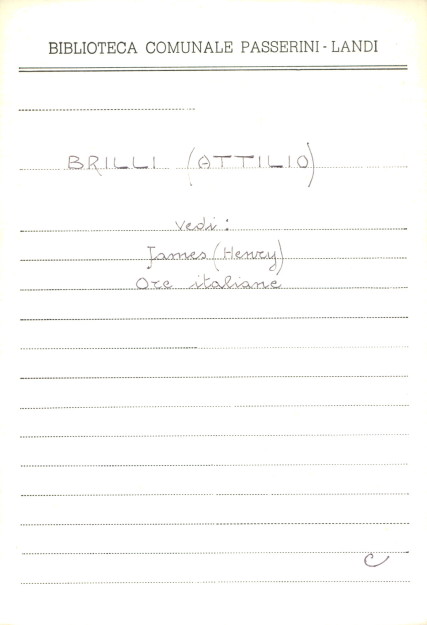 BIBLIOTECA COMUNALE PASSERINI - LANDI
BRILLI (ATTILIO)
vedi:
James (Henry)
Ore italiane
C